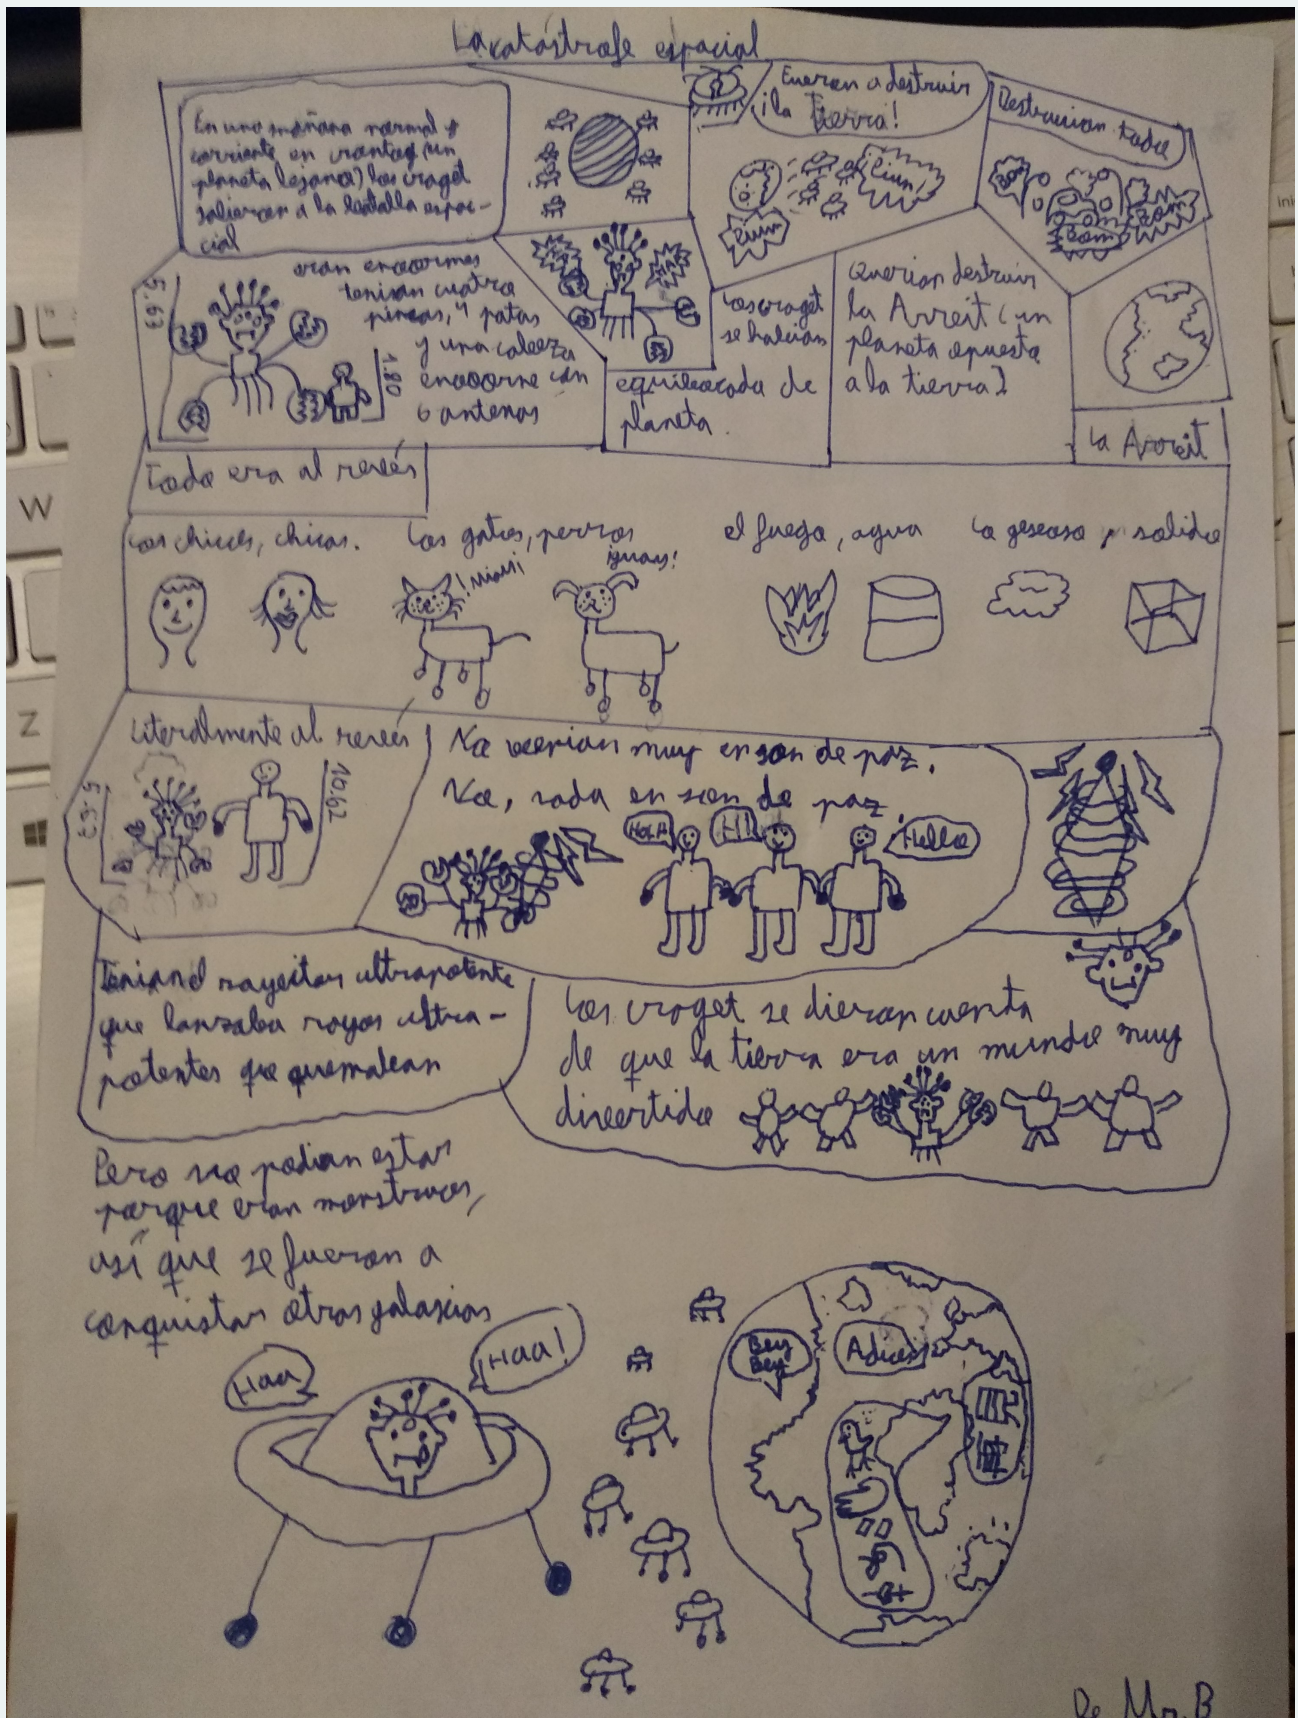 La catástrofe espacial
En una mañana normal y
corriente en crontag (un
planeta lejano) los croget
salieron a la batalla espac-
cial
Fueron a destruir
¡la tierra!
Piun
Piun
Destruccion todo
BOM
BOM
BOM
eran enoormes
tenian cuatro
pinzas, 4 patas
y una cabeza
enoorme con
6 antenas
5.63
1.80
Los croget
se habian
equibocado de
planeta.
Querian destruir
la Arreit (un
planeta opuesto
a la tierra)
La Arreit
Todo era al revés
Los chicos, chicas.
Los gatos, perros
¡Miau!
¡guau!
el fuego, agua
Lo geseoso y solido
Literalmente al revés
5.63
10.62
No venian muy en son de paz.
No, nada en son de paz.
HOLA
HI
Hello
Tenian el rayeitor ultrapotente
que lanzaba rayos ultra-
potentes que quemaban
Los croget se dieron cuenta
de que la tierra era un mundo muy
divertido
Pero no podian estar
porque eran monstruos,
así que se fueron a
conquistar otras galaxias
Haa
Haa!
Bey
Bey
Adios
De Mr. B